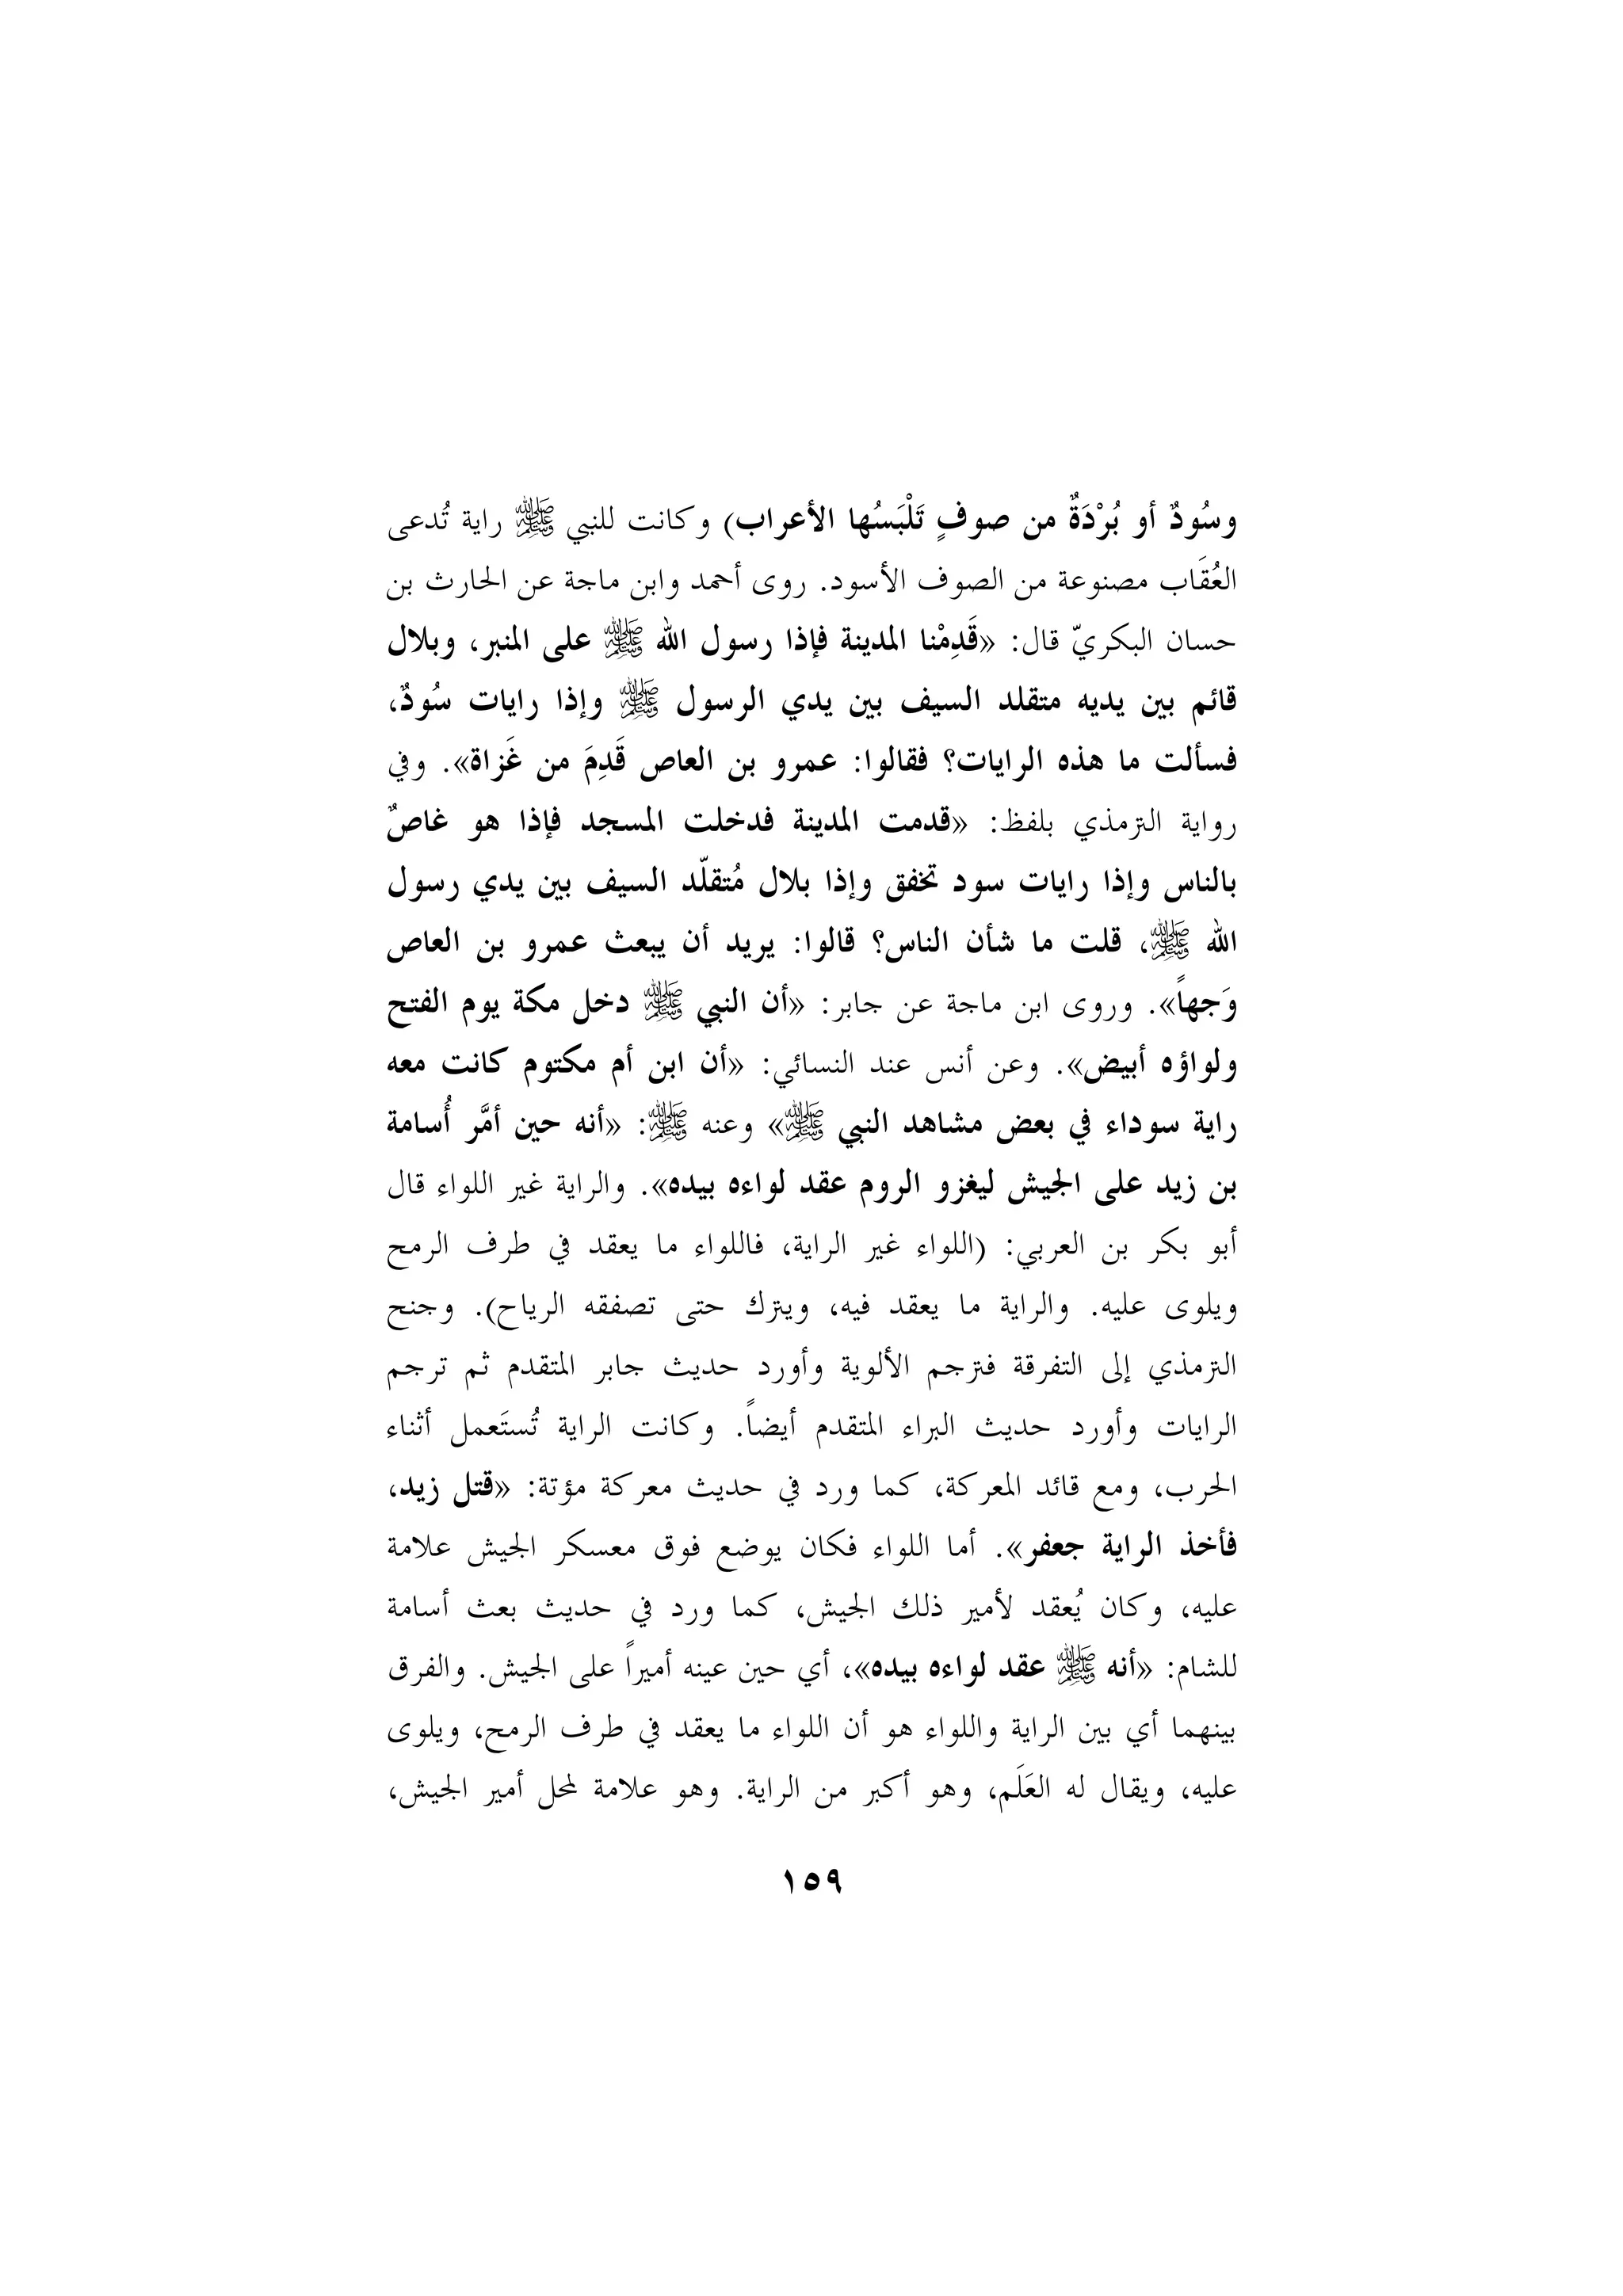 وسُودٌ أو بُرْدَةٌ من صوفٍ تَلْبَسُها الأعراب) وكانت للنبي ﷺ راية تُدعى
العُقَاب مصنوعة من الصوف الأسود. روى أحمد وابن ماجة عن الحارث بن
حسان البكريّ قال: «قَدِمْنا المدينة فإذا رسول الله ﷺ على المنبر، وبلال
قائم بين يديه متقلد السيف بين يدي الرسول ﷺ وإذا رايات سُودٌ،
فسألت ما هذه الرايات؟ فقالوا: عمرو بن العاص قَدِمَ من غَزاة». وفي
رواية الترمذي بلفظ: «قدمت المدينة فدخلت المسجد فإذا هو غاصٌ
بالناس وإذا رايات سود تخفق وإذا بلال مُتقلّد السيف بين يدي رسول
الله ﷺ، قلت ما شأن الناس؟ قالوا: يريد أن يبعث عمرو بن العاص
وَجهاً». وروى ابن ماجة عن جابر: «أن النبي ﷺ دخل مكة يوم الفتح
ولواؤه أبيض». وعن أنس عند النسائي: «أن ابن أم مكتوم كانت معه
راية سوداء في بعض مشاهد النبي ﷺ» وعنه ﷺ: «أنه حين أمَّر أُسامة
بن زيد على الجيش ليغزو الروم عقد لواءه بيده». والراية غير اللواء قال
أبو بكر بن العربي: (اللواء غير الراية، فاللواء ما يعقد في طرف الرمح
ويلوى عليه. والراية ما يعقد فيه، ويترك حتى تصفقه الرياح). وجنح
الترمذي إلى التفرقة فترجم الألوية وأورد حديث جابر المتقدم ثم ترجم
الرايات وأورد حديث البراء المتقدم أيضاً. وكانت الراية تُستَعمل أثناء
الحرب، ومع قائد المعركة، كما ورد في حديث معركة مؤتة: «قتل زيد،
فأخذ الراية جعفر». أما اللواء فكان يوضع فوق معسكر الجيش علامة
عليه، وكان يُعقد لأمير ذلك الجيش، كما ورد في حديث بعث أسامة
للشام: «أنه ﷺ عقد لواءه بيده»، أي حين عينه أميراً على الجيش. والفرق
بينهما أي بين الراية واللواء هو أن اللواء ما يعقد في طرف الرمح، ويلوى
عليه، ويقال له العَلَم، وهو أكبر من الراية. وهو علامة لمحل أمير الجيش،
١٥٩